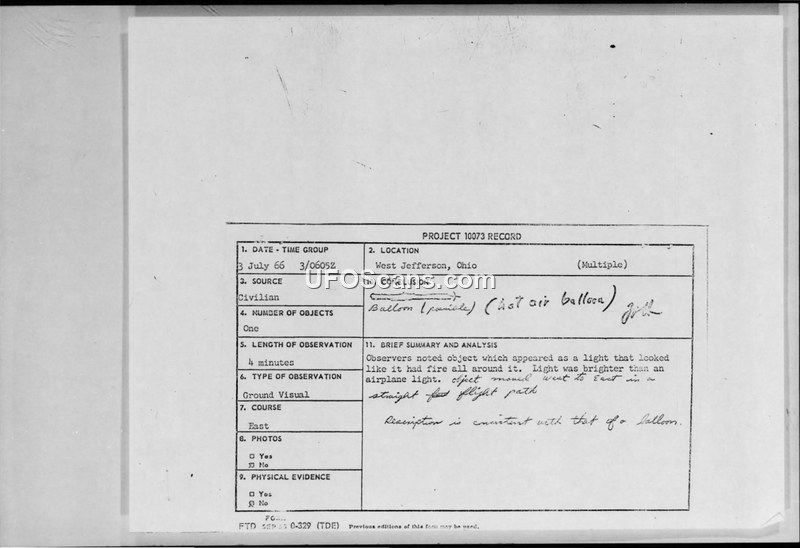 PROJECT 10073 RECORD
1. DATE - TIME GROUP
3 July 66 3/0605Z
2. LOCATION
West Jefferson, Ohio (Multiple)
3. SOURCE
Civilian
10. CONCLUSION
Balloon (possible) (hot air balloon)
4. NUMBER OF OBJECTS
One
5. LENGTH OF OBSERVATION
4 minutes
11. BRIEF SUMMARY AND ANALYSIS
Observers noted object which appeared as a light that looked
like it had fire all around it. Light was brighter than an
airplane light. object moved west to East in a
straight flight path
Description is consistant with that of a balloon.
6. TYPE OF OBSERVATION
Ground Visual
7. COURSE
East
8. PHOTOS
□ Yes
☒ No
9. PHYSICAL EVIDENCE
□ Yes
☒ No
FTD 0-329 (TDE) Previous editions of this form may be used.
UFOScans.com